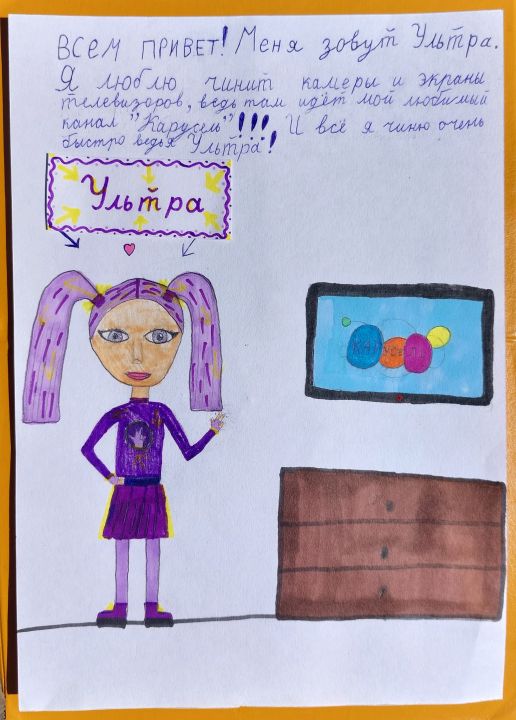 ВСЕМ ПРИВЕТ! Меня зовут Ультра.
Я люблю чинит камеры и экраны
телевизоров, ведь там идёт мой любимый
канал "Карусель"!!! И всё я чиню очень
быстро ведь я Ультра!
Ультра
КАРУСЕЛЬ